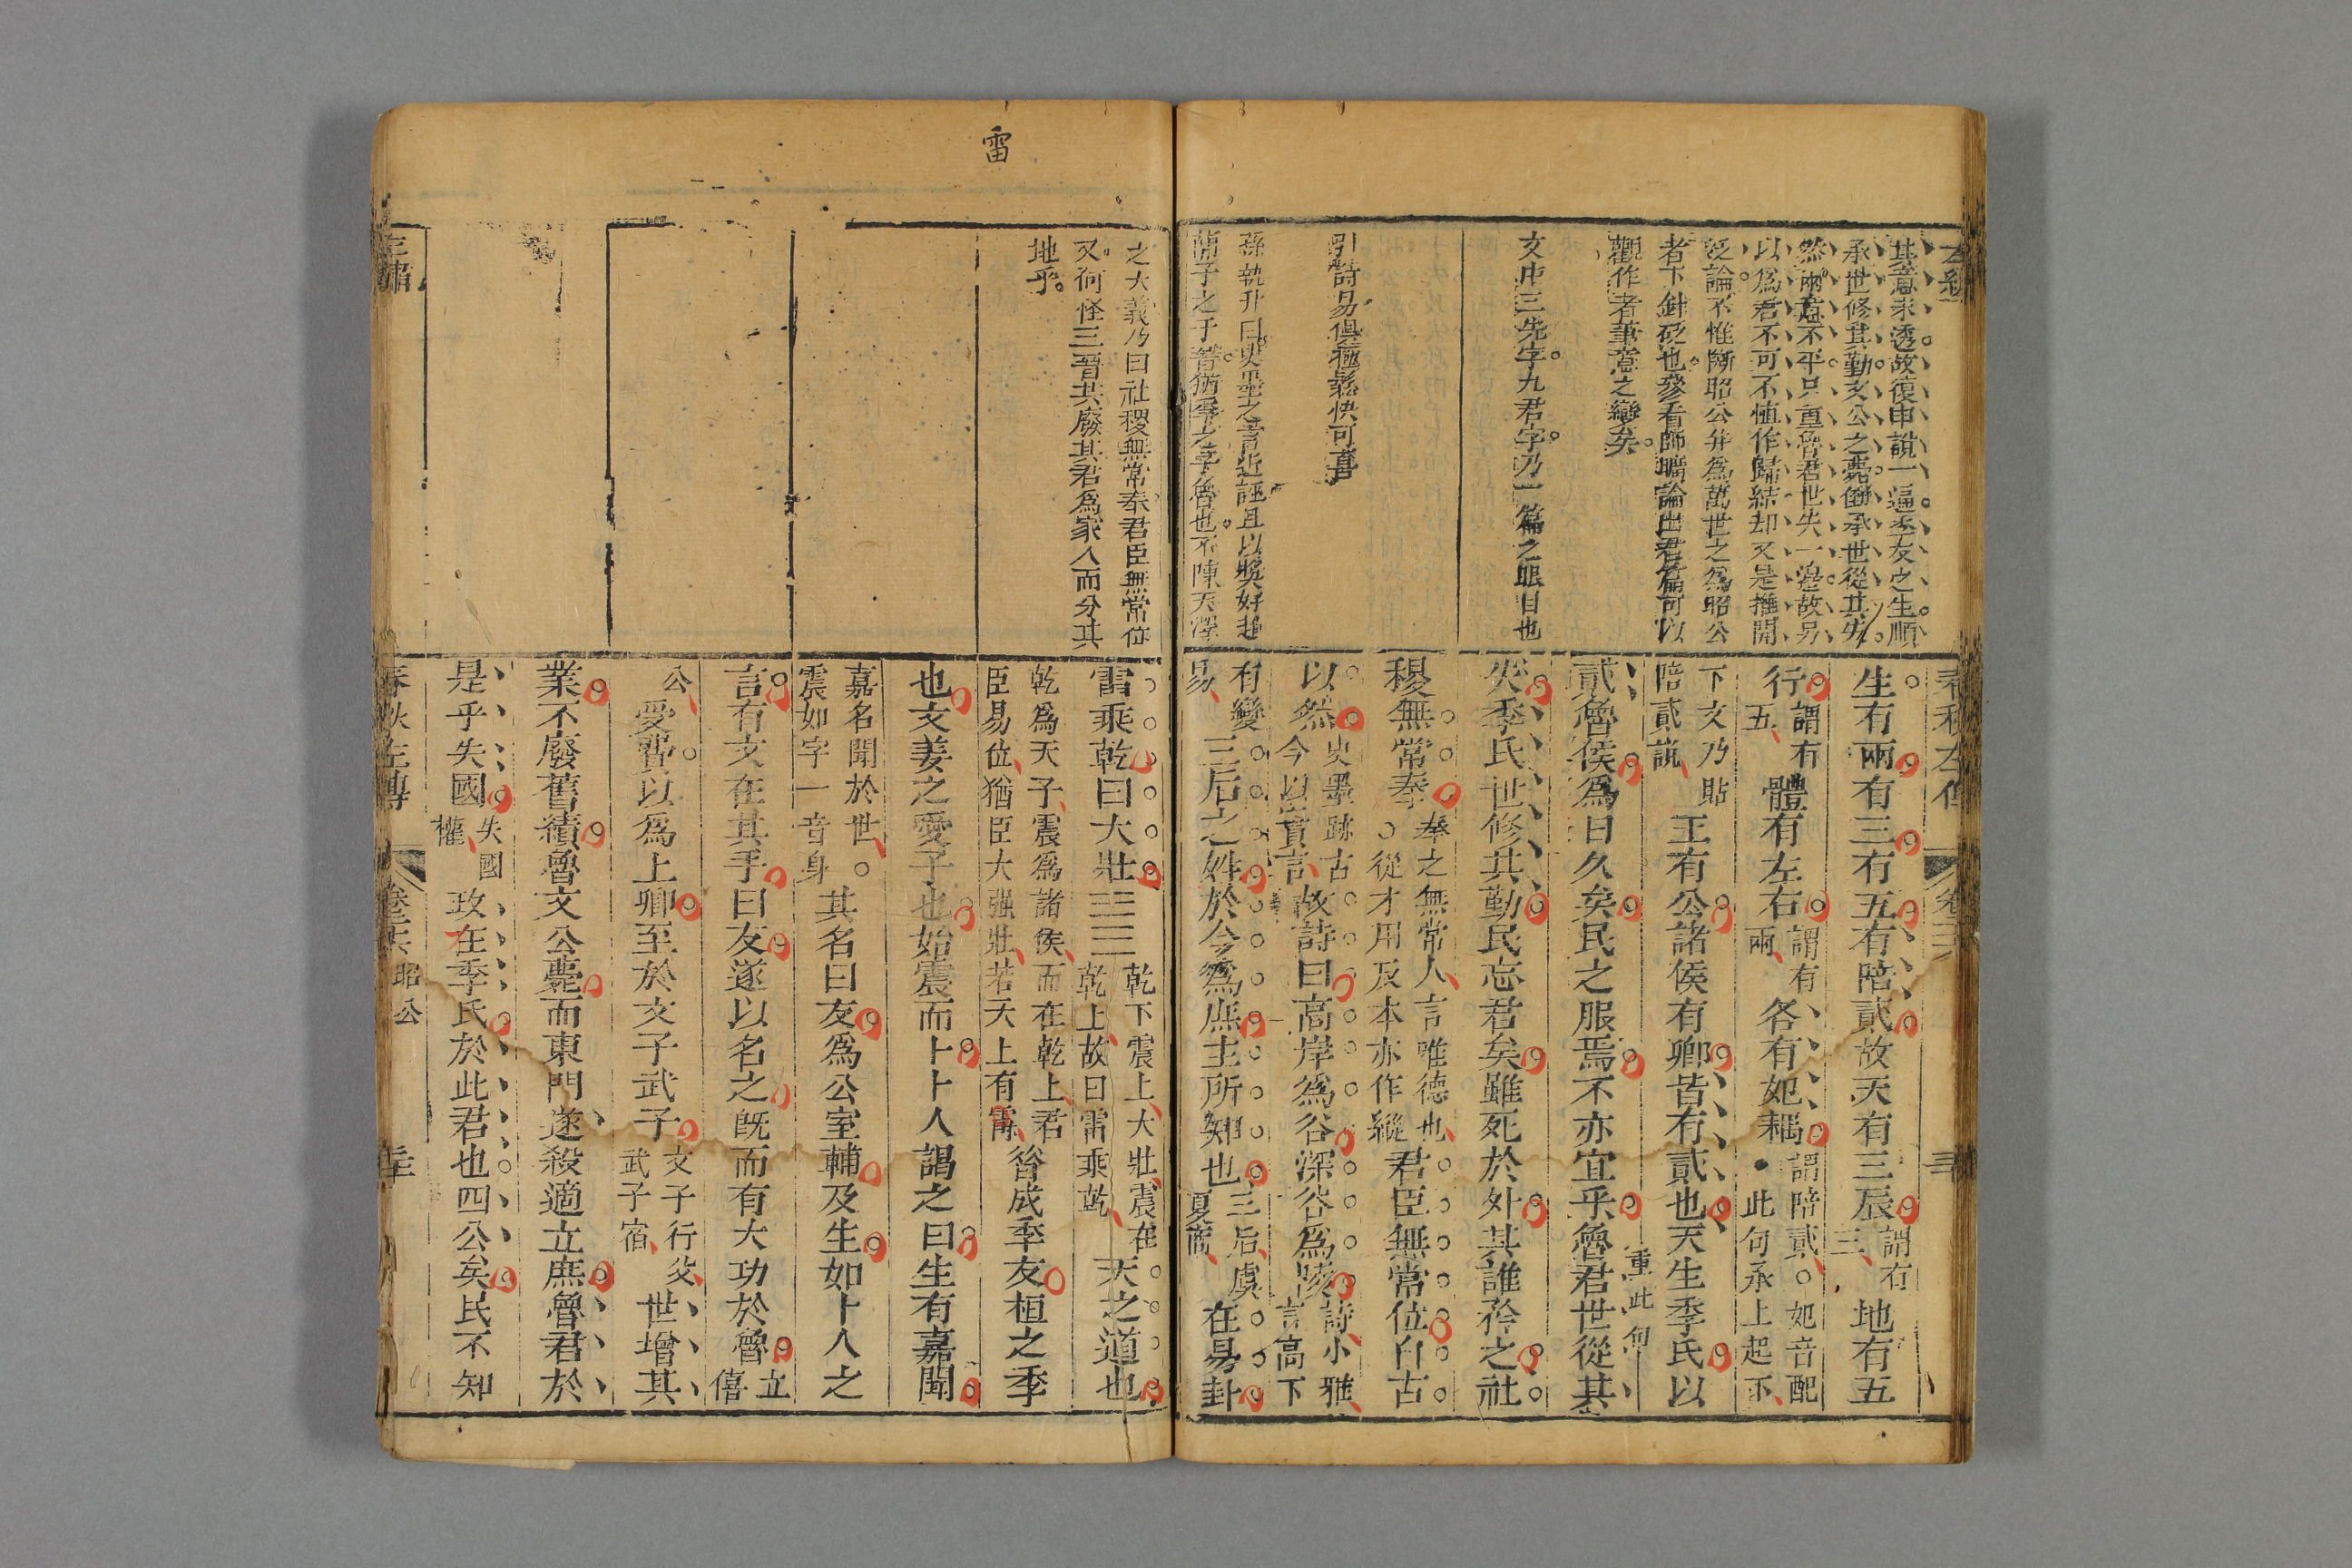 其意未透故復申說一遍季友之生順
承世修其勤文公之薨倒承世從其失
然兩意不平只重魯君世失一邊故另
以為君不可不慎作歸結却又是推開
泛論不惟斷昭公并為萬世之為昭公
者下針砭也參看師曠論出君篇可以
觀作者筆意之變矣
文中三先字九君字乃一篇之眼目也
引詩易俱極鬆快可喜
孫執升曰史墨之言近誣且以獎奸趙
簡子之于晉猶季之于魯也不陳天澤
春秋左傳
生有兩有三有五有陪貳故天有三辰
謂有
三
地有五
行
謂有
五
體有左右
謂有
兩
各有妃耦
謂陪貳○妃音配
•此句承上起不
下文乃貼
陪貳說
王有公諸侯有卿皆有貳也天生季氏以
貳魯侯為日久矣民之服焉不亦宜乎魯君世從其
重此句
失季氏世修其勤民忘君矣雖死於外其誰矜之社
稷無常奉
奉之無常人言唯德也
○從才用反本亦作縱
君臣無常位自古
以然
史墨跡古
今以實言
故詩曰高岸為谷深谷為陵
詩小雅
言高下
有變
易
三后之姓於今為庶主所知也
三后虞
夏商
在易卦
雷
之大義乃曰社稷無常奉君臣無常位
又何怪三晉共廢其君為家人而分其
地乎
雷乘乾曰大壯☳☰
乾下震上大壯震在
乾上故曰雷乘乾
天之道也
乾為天子震為諸侯而在乾上君
臣易位猶臣大強壯若天上有雷
昔成季友桓之季
也文姜之愛子也始震而卜卜人謁之曰生有嘉聞
嘉名聞於世○
震如字一音身
其名曰友為公室輔及生如卜人之
言有文在其手曰友遂以名之既而有大功於魯
立
僖
公
受費以為上卿至於文子武子
文子行父
武子宿
世增其
業不廢舊績魯文公薨而東門遂殺適立庶魯君於
是乎失國
失國
權
政在季氏於此君也四公矣民不知
春秋左傳
昭公